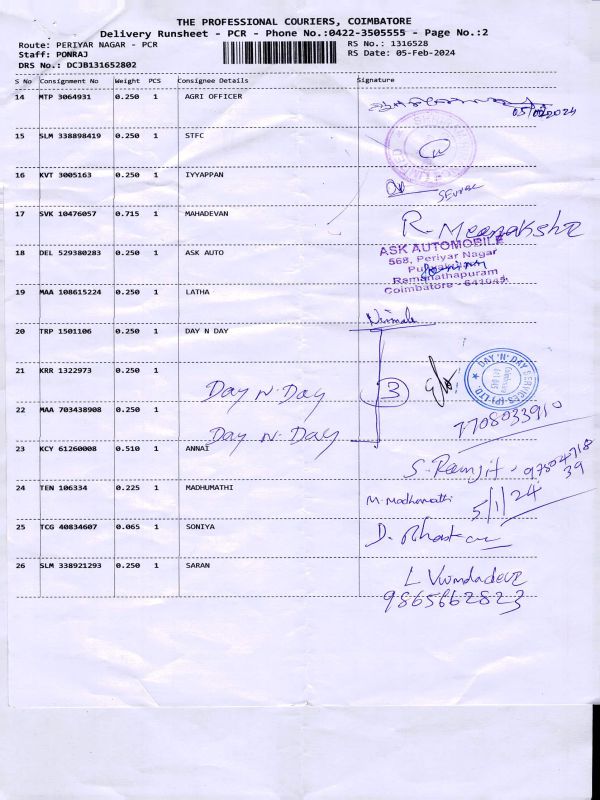 THE PROFESSIONAL COURIERS, COIMBATORE
Delivery Runsheet - PCR - Phone No.:0422-3505555 - Page No.:2
Route: PERIYAR NAGAR - PCR
RS No.: 1316528
Staff: PONRAJ
RS Date: 05-Feb-2024
DRS No.: DCJB131652802
S No Consignment No Weight PCS Consignee Details Signature
14 MTP 3064931 0.250 1 AGRI OFFICER
15 SLM 338898419 0.250 1 STFC
16 KVT 3005163 0.250 1 IYYAPPAN
17 SVK 10476057 0.715 1 MAHADEVAN R Meenakshi
18 DEL 529380283 0.250 1 ASK AUTO
ASK AUTOMOBILE
568, Periyar Nagar
Ramanathapuram
Coimbatore - 641045
19 MAA 108615224 0.250 1 LATHA Nirmala
20 TRP 1501106 0.250 1 DAY N DAY
21 KRR 1322973 0.250 1 Day N. Day 3
DAY 'N' DAY SERVICES (P) LTD.
22 MAA 703438908 0.250 1 Day N. Day 7708033910
23 KCY 61260008 0.510 1 ANNAI S. Ramjit - 9750471839
24 TEN 106334 0.225 1 MADHUMATHI M. Madhumathi 5/1/24
25 TCG 40834607 0.065 1 SONIYA D. Bhaskar
26 SLM 338921293 0.250 1 SARAN
9865662823